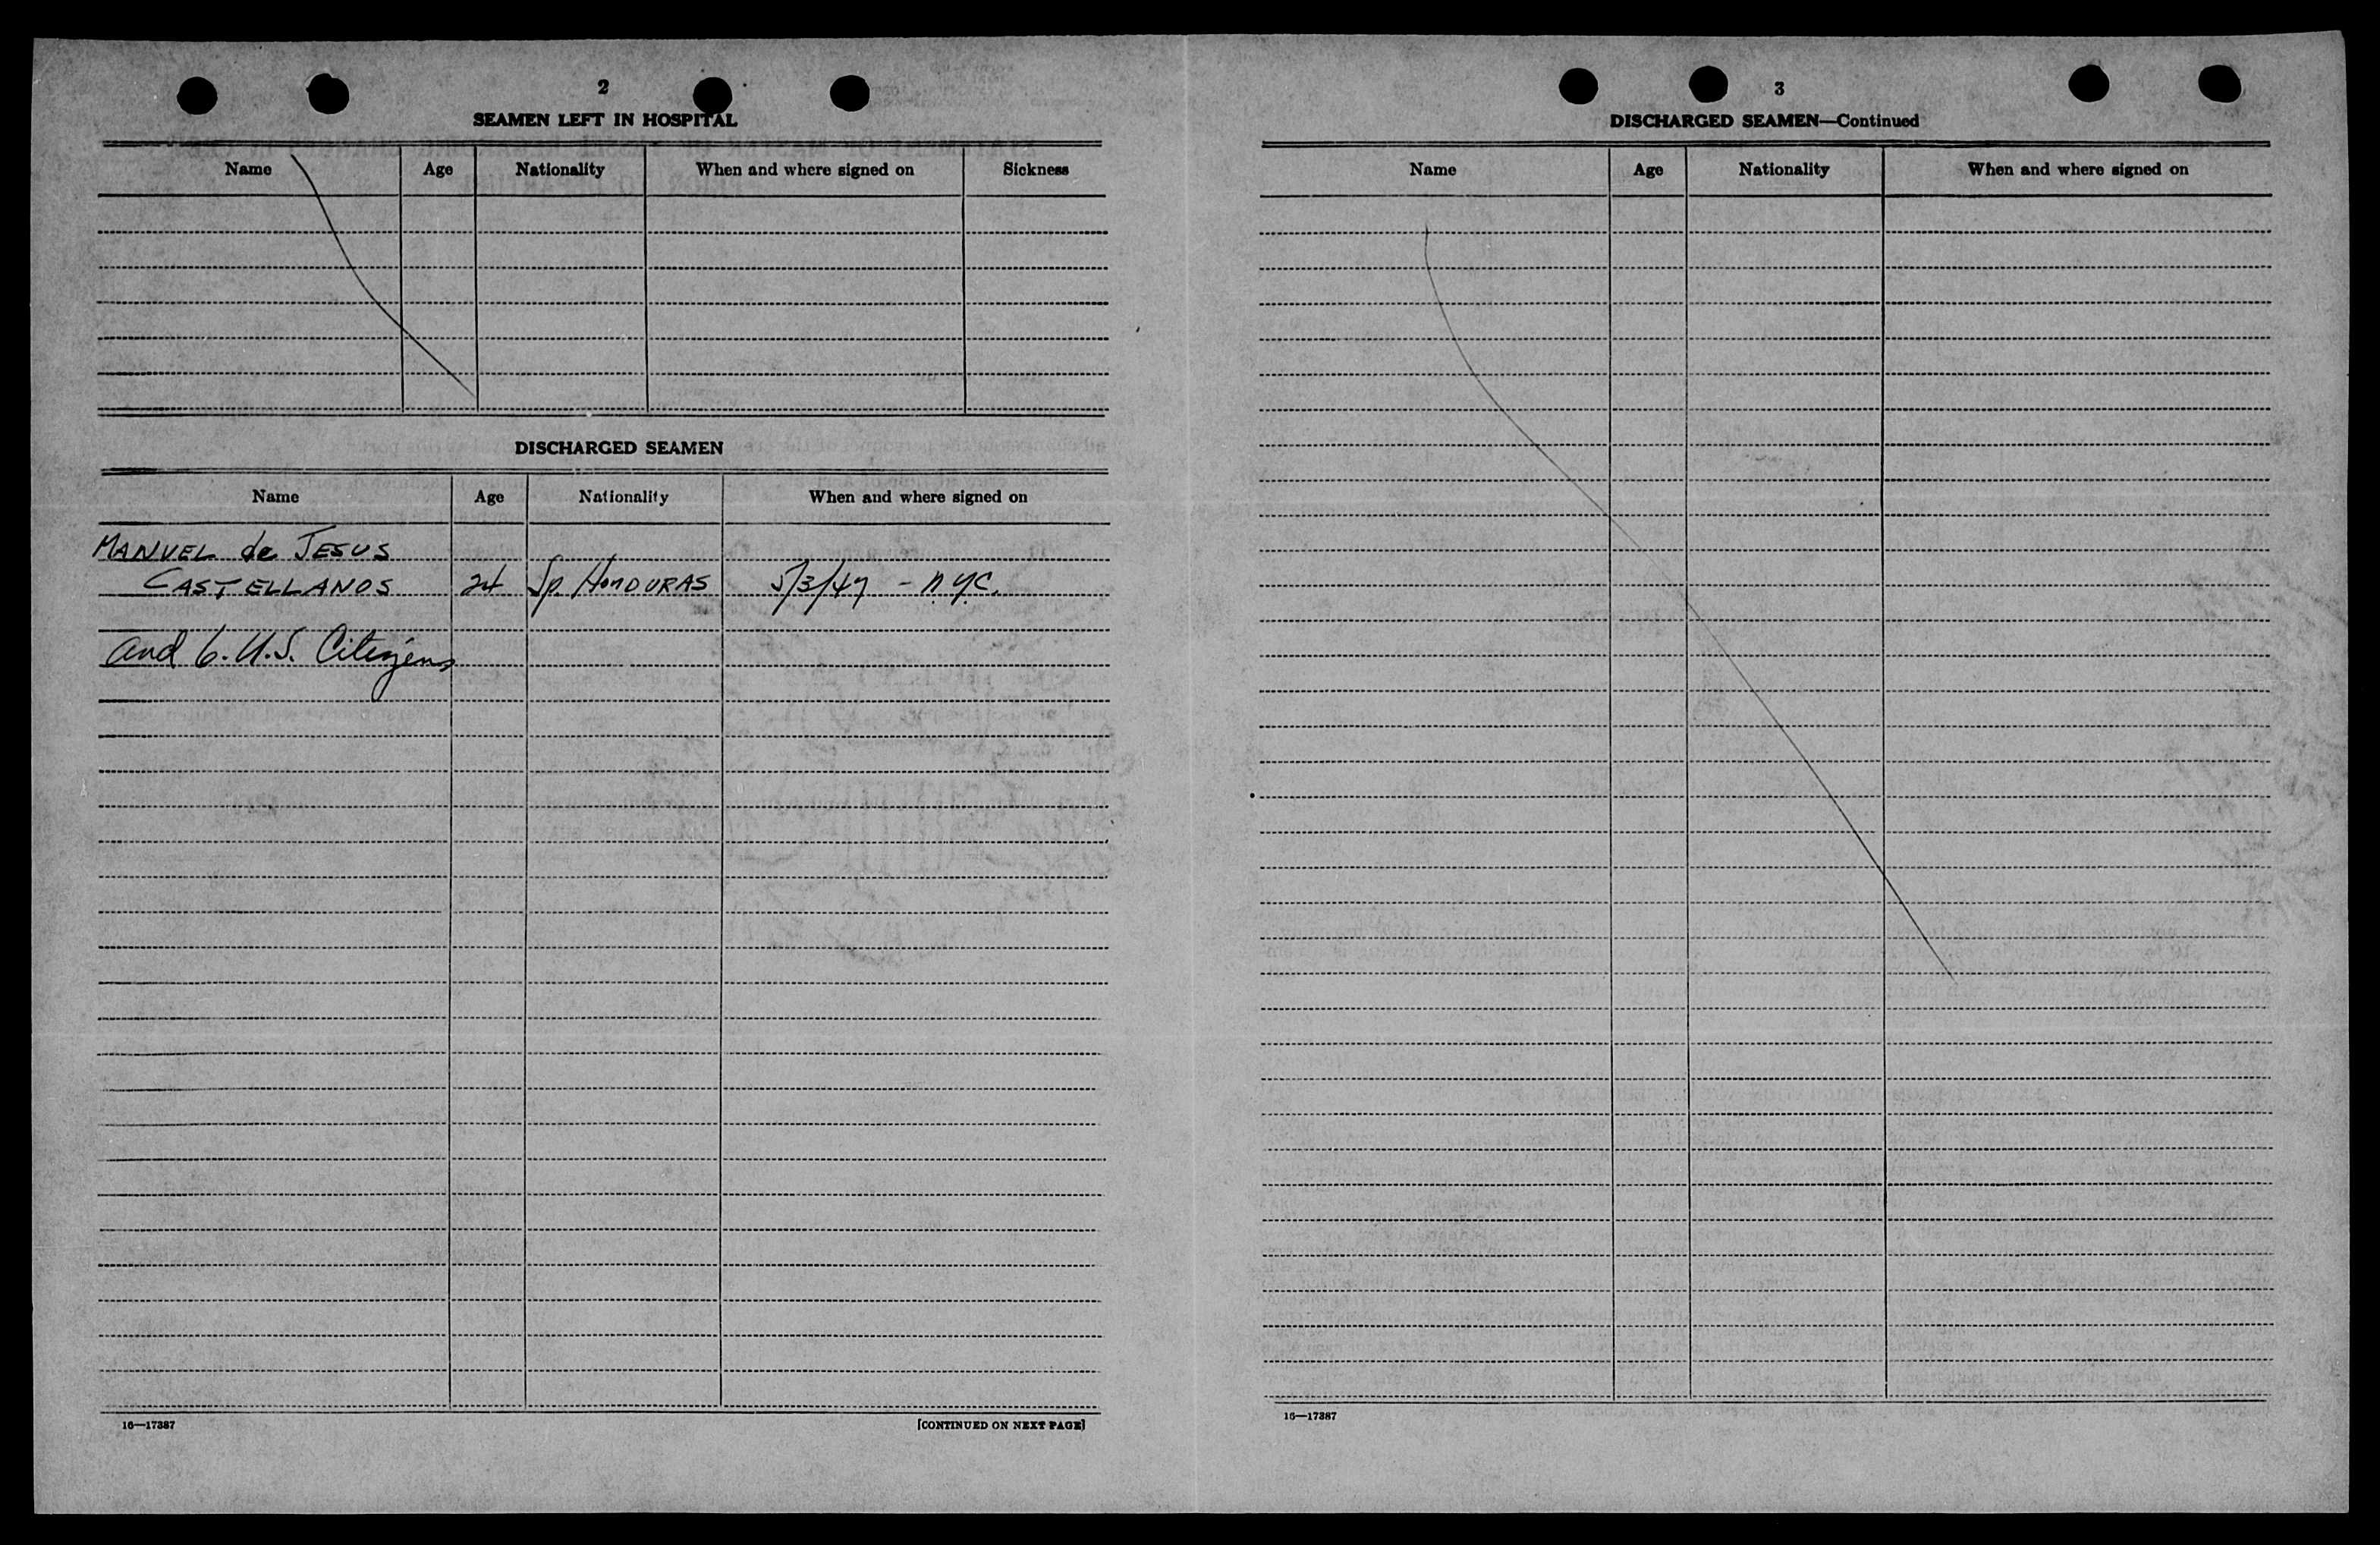 2
SEAMEN LEFT IN HOSPITAL
Name Age Nationality When and where signed on Sickness
DISCHARGED SEAMEN
Name Age Nationality When and where signed on
MANUEL de JESUS
CASTELLANOS 24 Sp. HONDURAS 5/3/47 - N.Y.C.
and 6. U.S. Citizens
16—17387 [CONTINUED ON NEXT PAGE]
3
DISCHARGED SEAMEN—Continued
Name Age Nationality When and where signed on
16—17387